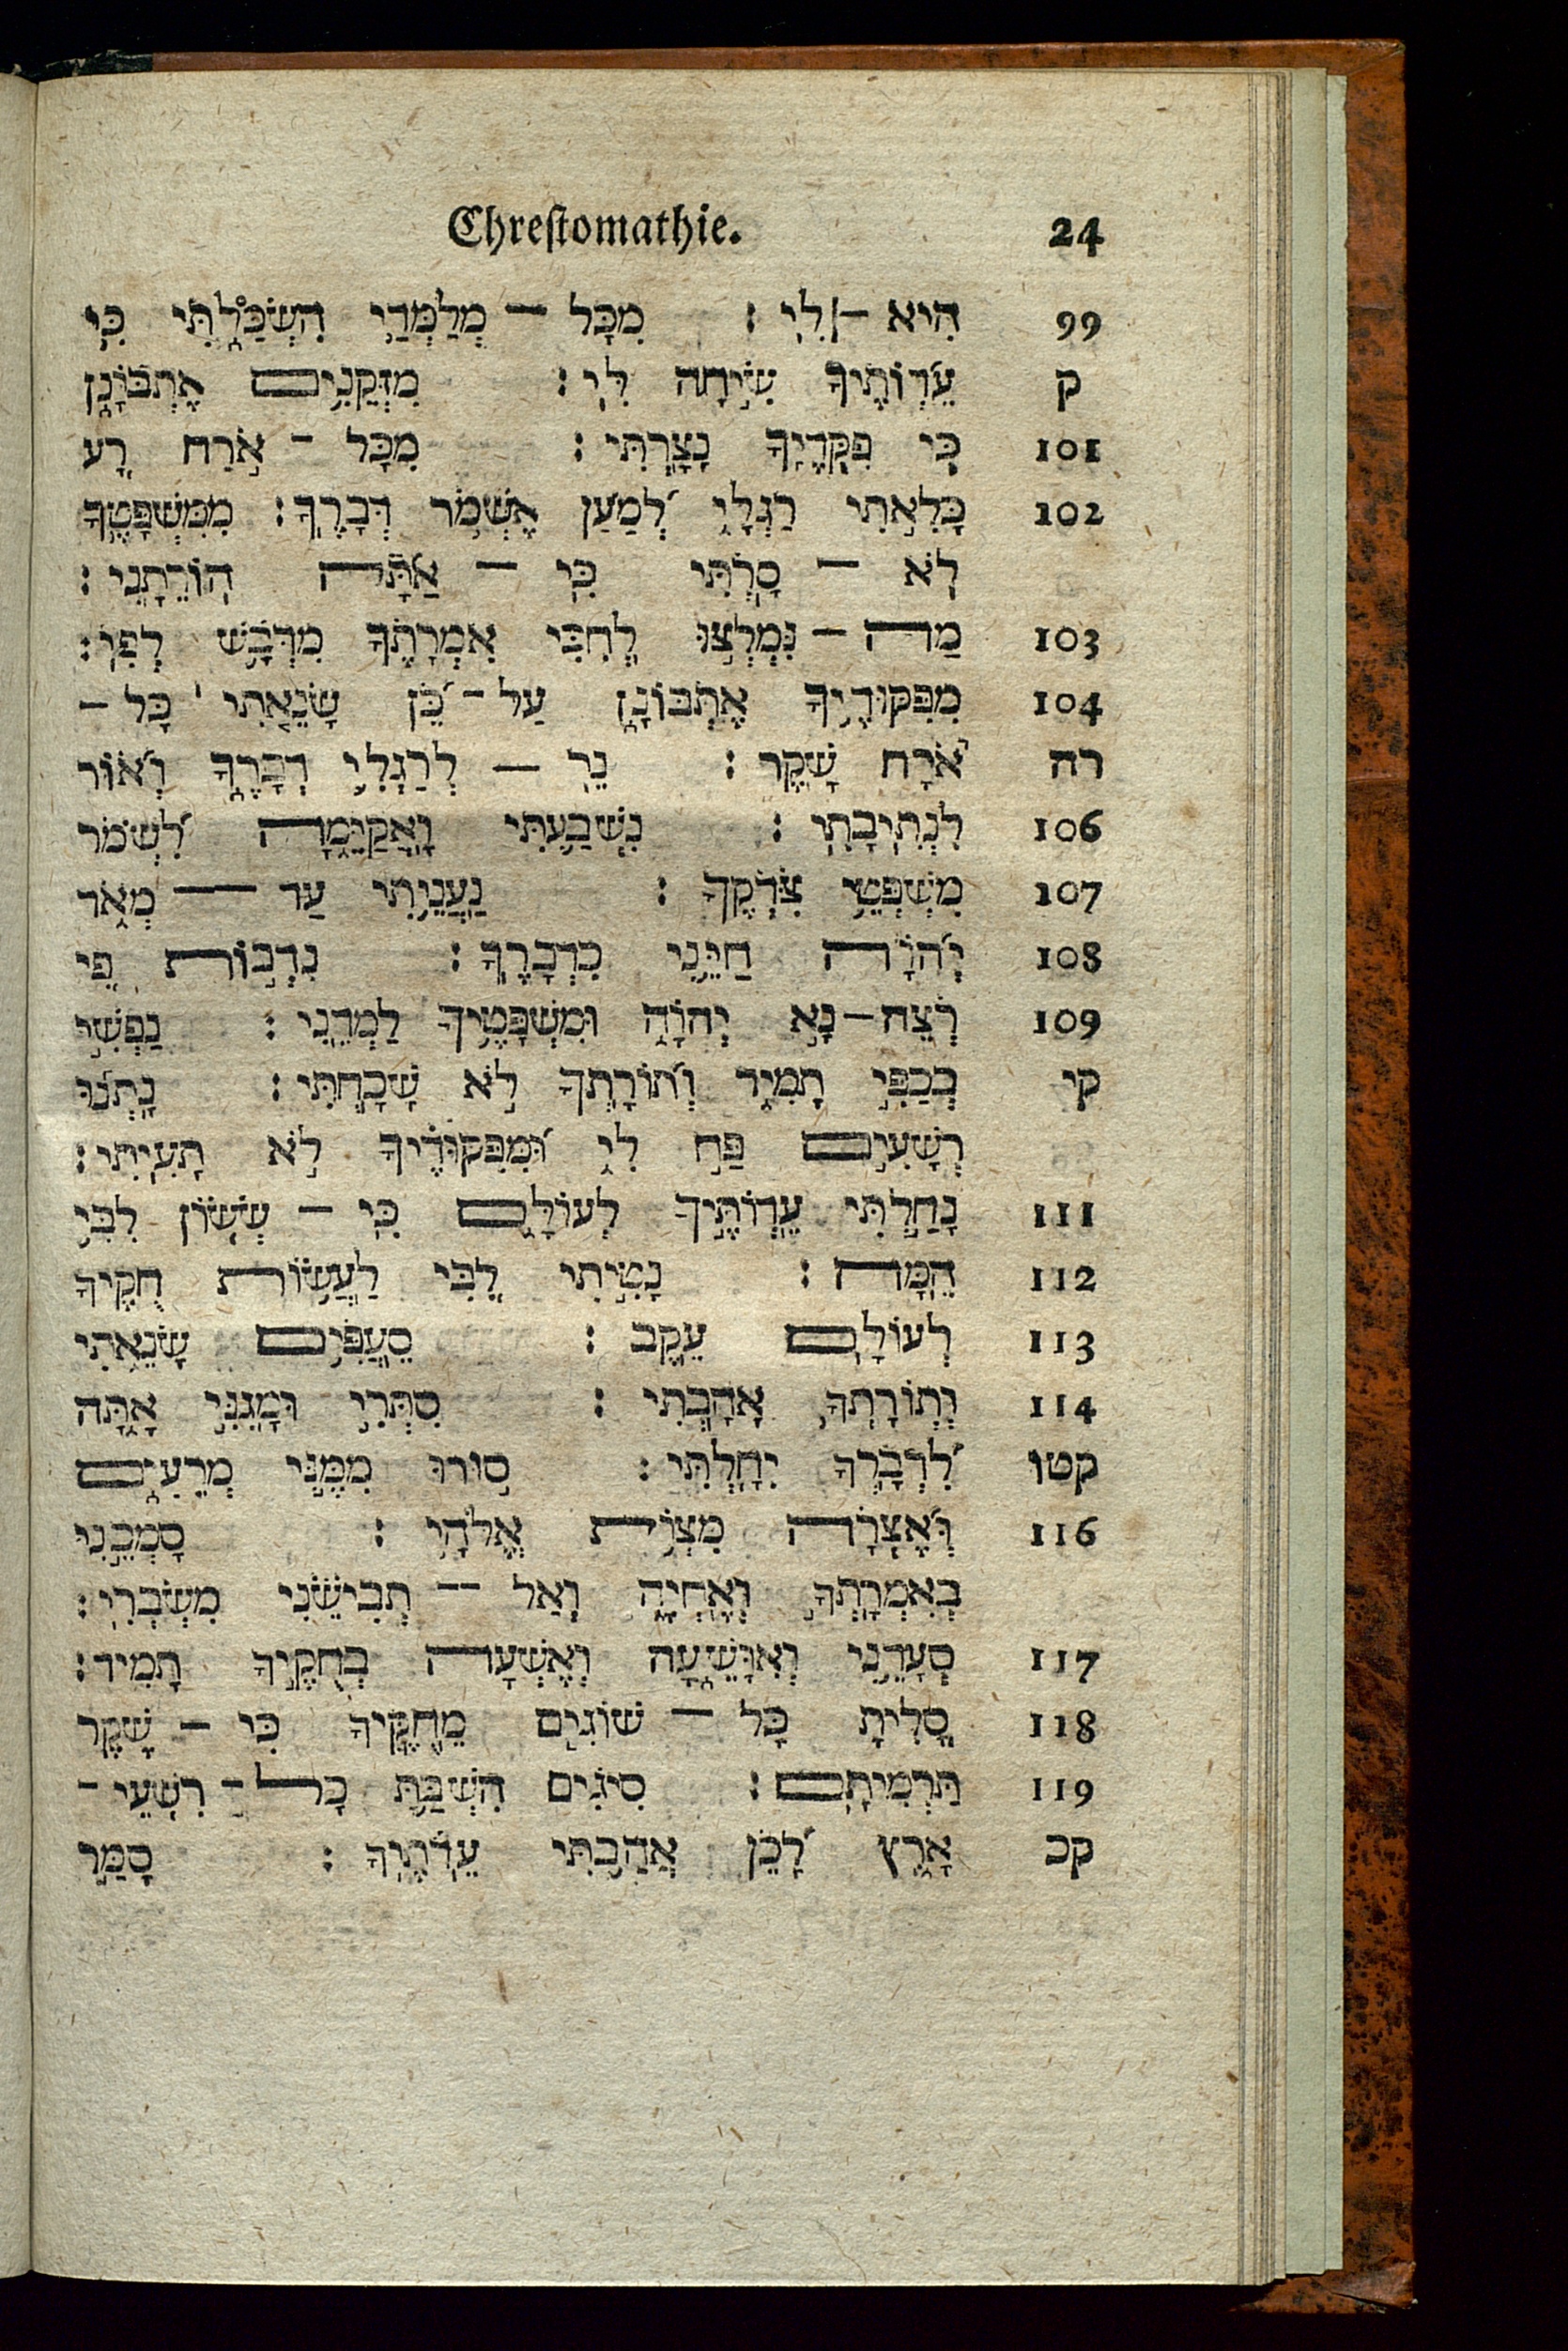 Chrestomathie. 24
99 הִיא־לִי׃ מִכָּל־מְלַמְּדַי הִשְׂכַּלְתִּי כִּי
ק עֵדְוֹתֶיךָ שִׂיחָה לִּי׃ מִזְּקֵנִים אֶתְבּוֹנָן
101 כִּי פִקֻּדֶיךָ נָצָרְתִּי׃ מִכָּל־אֹרַח רָע
102 כָּלִאתִי רַגְלָי לְמַעַן אֶשְׁמֹר דְּבָרֶךָ׃ מִמִּשְׁפָּטֶיךָ
לֹא־סָרְתִּי כִּי־אַתָּה הוֹרֵתָנִי׃
103 מַה־נִּמְלְצוּ לְחִכִּי אִמְרָתֶךָ מִדְּבַשׁ לְפִי׃
104 מִפִּקּוּדֶיךָ אֶתְבּוֹנָן עַל־כֵּן שָׂנֵאתִי כָּל־
רח אֹרַח שָׁקֶר׃ נֵר־לְרַגְלִי דְבָרֶךָ וְאוֹר
106 לִנְתִיבָתִי׃ נִשְׁבַּעְתִּי וָאֲקַיֵּמָה לִשְׁמֹר
107 מִשְׁפְּטֵי צִדְקֶךָ׃ נַעֲנֵיתִי עַד־מְאֹד
108 יְהוָה חַיֵּנִי כִדְבָרֶךָ׃ נִדְבוֹת פִּי
109 רְצֵה־נָא יְהוָה וּמִשְׁפָּטֶיךָ לַמְּדֵנִי׃ נַפְשִׁי
קי בְכַפִּי תָמִיד וְתוֹרָתְךָ לֹא שָׁכָחְתִּי׃ נָתְנוּ
רְשָׁעִים פַּח לִי וּמִפִּקּוּדֶיךָ לֹא תָעִיתִי׃
111 נָחַלְתִּי עֵדְוֹתֶיךָ לְעוֹלָם כִּי־שְׂשׂוֹן לִבִּי
112 הֵמָּה׃ נָטִיתִי לִבִּי לַעֲשׂוֹת חֻקֶּיךָ
113 לְעוֹלָם עֵקֶב׃ סֵעֲפִים שָׂנֵאתִי
114 וְתוֹרָתְךָ אָהָבְתִּי׃ סִתְרִי וּמָגִנִּי אָתָּה
קטו לִדְבָרְךָ יִחָלְתִּי׃ סוּרוּ מִמֶּנִּי מְרֵעִים
116 וְאֶצְּרָה מִצְוֹת אֱלֹהָי׃ סָמְכֵנִי
כְאִמְרָתְךָ וְאֶחְיֶה וְאַל־תְּבִישֵׁנִי מִשִּׂבְרִי׃
117 סְעָדֵנִי וְאִוָּשֵׁעָה וְאֶשְׁעָה בְחֻקֶּיךָ תָמִיד׃
118 סָלִיתָ כָּל־שׁוֹגִים מֵחֻקֶּיךָ כִּי־שֶׁקֶר
119 תַּרְמִיתָם׃ סִיגִים הִשְׁבַּתָּ כָל־רִשְׁעֵי־
קכ אָרֶץ לָכֵן אָהַבְתִּי עֵדֹתֶיךָ׃ סָמַר